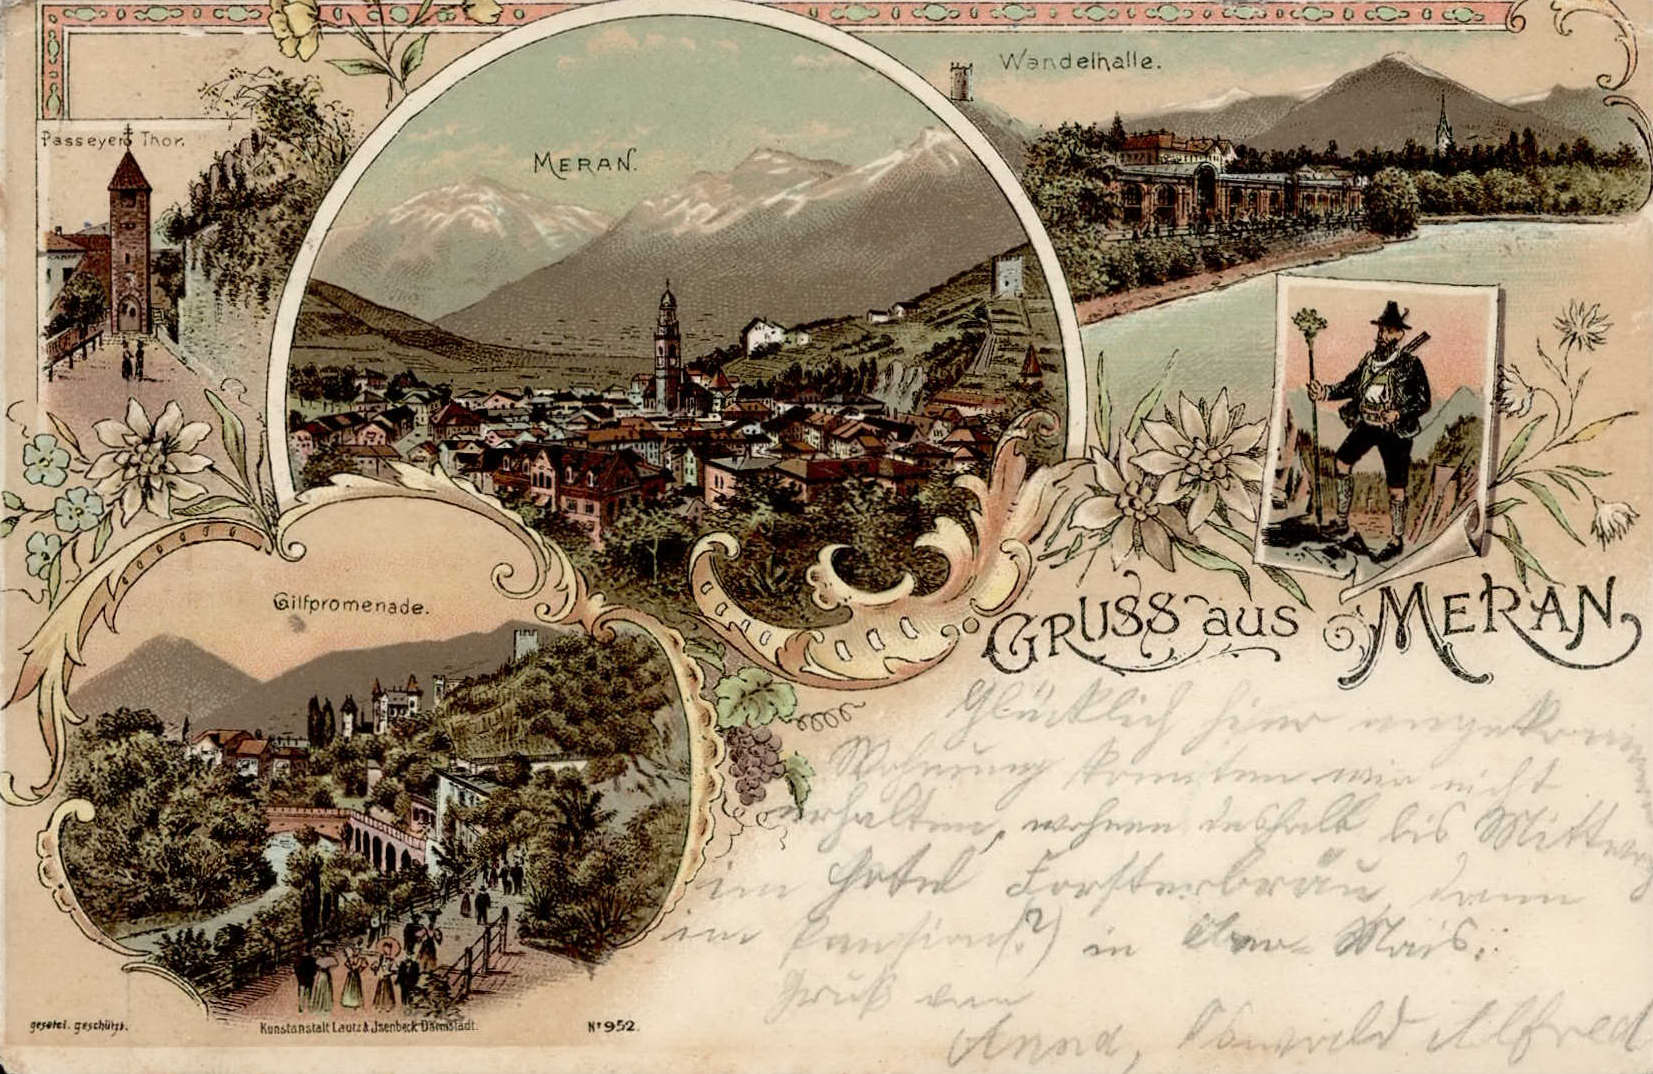 Passeyer Thor.
MERAN.
Wandelhalle.
Gilfpromenade.
GRUSS aus MERAN
Glücklich hier angekommen
Wohnung konnten wir nicht
erhalten, wohnen deshalb bis Mittwoch
im Hotel Forsterbräu, dann
im Pension(?) in Ober-Mais.
Gruß von
Anna, Oswald Alfred
gesetzl. geschützt.
Kunstanstalt Lautz & Jsenbeck Darmstadt.
Nº 952.